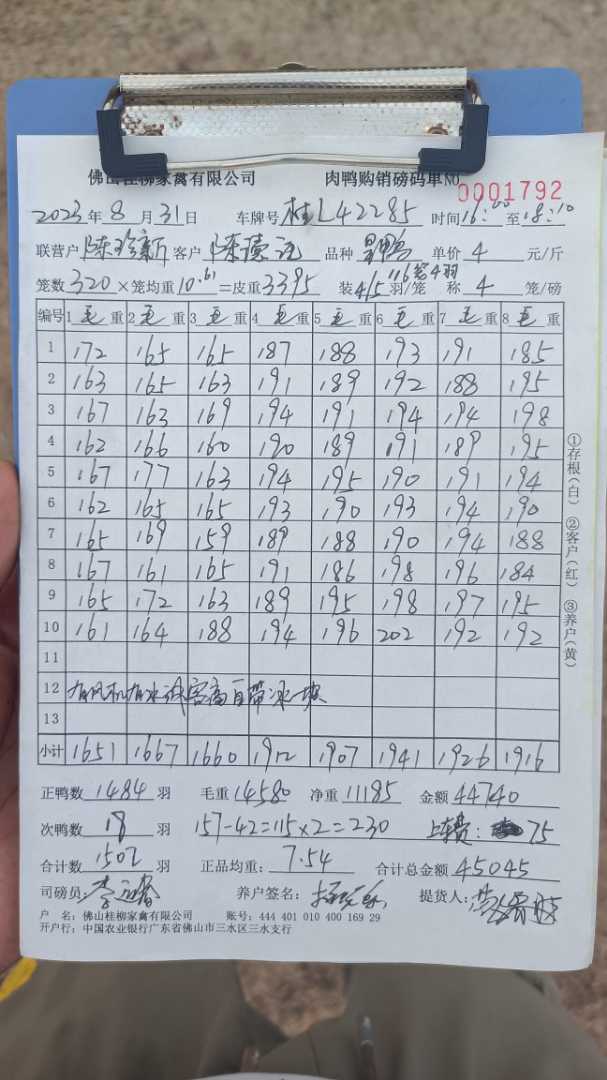 佛山桂柳家禽有限公司 肉鸭购销磅码单 NO 0001792
2023年8月31日 车牌号 桂L42285 时间16:00至18:10
联营户 陈珍新 客户 陈 品种 鸭 单价 4 元/斤
笼数 320 ×笼均重 10.61 =皮重 3395 装 4/5 羽/笼 116笼4羽 称 4 笼/磅
编号 1 毛 重 2 毛 重 3 毛 重 4 毛 重 5 毛 重 6 毛 重 7 毛 重 8 毛 重
1 172 165 165 187 188 193 191 185
2 163 165 163 191 189 192 188 195
3 167 163 169 194 191 194 194 198
4 162 166 160 190 189 191 189 195
5 167 177 163 194 195 190 191 194
6 162 165 165 193 190 193 194 190
7 165 169 159 189 188 190 194 188
8 167 161 165 191 186 198 196 184
9 165 172 163 189 195 198 197 195
10 161 164 188 194 196 202 192 192
11
12 有风机有冰 客商自带冰块
13
小计 1651 1667 1660 1912 1907 1941 1926 1916
正鸭数 1484 羽 毛重 14580 净重 11185 金额 44740
次鸭数 18 羽 157-42=115×2=230 上车费: 75
合计数 1502 羽 正品均重: 7.54 合计总金额 45045
司磅员: 养户签名: 提货人:
户 名: 佛山桂柳家禽有限公司 账号: 444 401 010 400 169 29
开户行: 中国农业银行广东省佛山市三水区三水支行
①存根(白) ②客户(红) ③养户(黄)